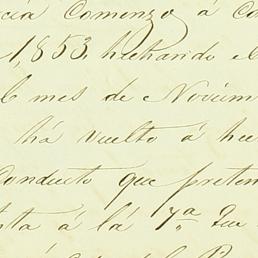 cia Comenzo á Co
1,853, hechando el
l mes de Novium
há vuelto á hu
Conducto que preten
sta á lá 7ª